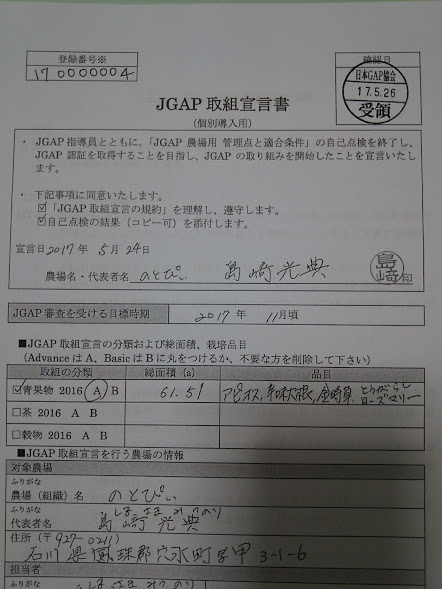 登録番号※
17000004
確認日
日本GAP協会
17.5.26
受領
JGAP 取組宣言書
(個別導入用)
・ JGAP 指導員とともに、「JGAP 農場用 管理点と適合条件」の自己点検を終了し、
JGAP 認証を取得することを目指し、JGAP の取り組みを開始したことを宣言いたし
ます。
・ 下記事項に同意いたします。
☑「JGAP 取組宣言の規約」を理解し、遵守します。
☑自己点検の結果(コピー可)を添付します。
宣言日 2017 年 5 月 24日
農場名・代表者名 のとぴぃ 島崎光典 島崎 印
JGAP 審査を受ける目標時期 2017 年 11月頃
■JGAP 取組宣言の分類および総面積、栽培品目
(Advance は A、Basic は B に丸をつけるか、不要な方を削除して下さい)
取組の分類 総面積 (a) 品目
☑青果物 2016 A B 61.59 金時草 とうがらし ローズマリー
□茶 2016 A B
□穀物 2016 A B
■JGAP 取組宣言を行う農場の情報
対象農場
ふりがな
農場(組織)名 のとぴぃ
ふりがな しまざき みつのり
代表者名 島崎光典
住所 (〒927-0211)
石川県鳳珠郡穴水町字甲 3-1-6
担当者
ふりがな